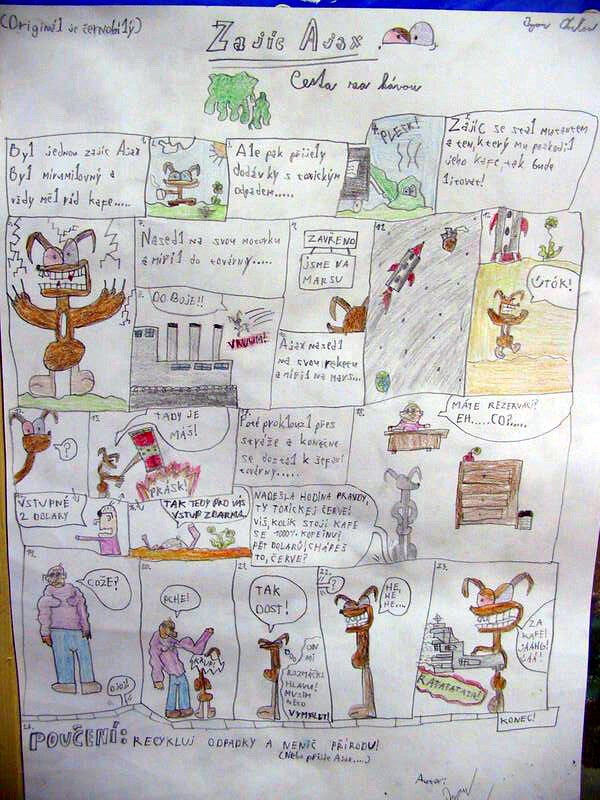 (Originál je černobílý)
Zajíc Ajax
Cesta za kávou
Byl jednou zajíc Ajax
Byl mírumilovný a
vždy měl rád kafe.....
Ale pak přijely
dodávky s toxickým
odpadem.....
PLESK!
Zajíc se stal mutantem
a ten, který mu poškodil
jeho kafe, tak bude
litovat!
Nasedl na svou motorku
a míří do továrny.....
DO BOJE!!
VRUUUM!
ZAVŘENO
JSME NA
MARSU
Ajax nasedl
na svou raketu
a míří na mars...
ÚTOK!
?
TADY JE
MÁŠ!
PRÁSK!
VSTUPNÉ
2 DOLARY
TAK TEDY PRO VÁS
VSTUP ZDARMA..
Poté proklouzl přes
stráže a konečně
se dostal k šéfovi
továrny.....
MÁTE REZERVACI?
EH.....CO?....
NADEŠLA HODINA PRAVDY,
TY TOXICKEJ ČERVE!
VÍŠ, KOLIK STOJÍ KAFE
SE 1000% KOFEINU?
PĚT DOLARŮ! CHÁPEŠ
TO, ČERVE?
COŽE?
PCHE!
KŘUP!
TAK
DOST!
ON
MI
ROZMÁČKL
HLAVU!
MUSÍM
NĚCO
VYMYSLET!
?
HE,
HE
HE...
ZA
KAFE!
RATATATATA!
KONEC!
POUČENÍ: RECYKLUJ ODPADKY A NENIČ PŘÍRODU!
(Nebo přijde Ajax....)
Autor: